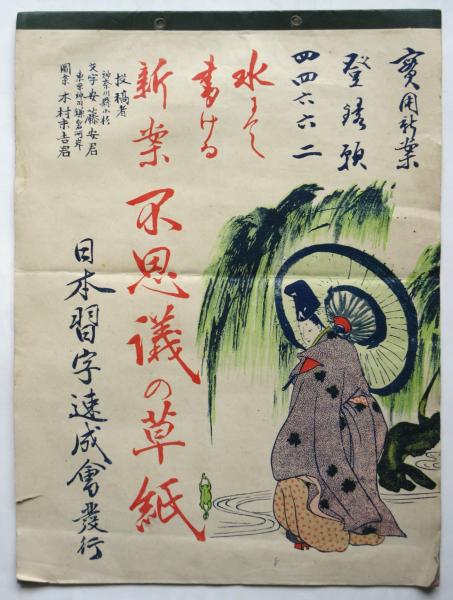 實用新案
登錄願
四四六六二
水にて
書ける
新案不思議の草紙
投稿者
神奈川縣小杉
文字安藤安君
東京神田鎌倉河岸
圖案木村末吉君
日本習字速成會發行